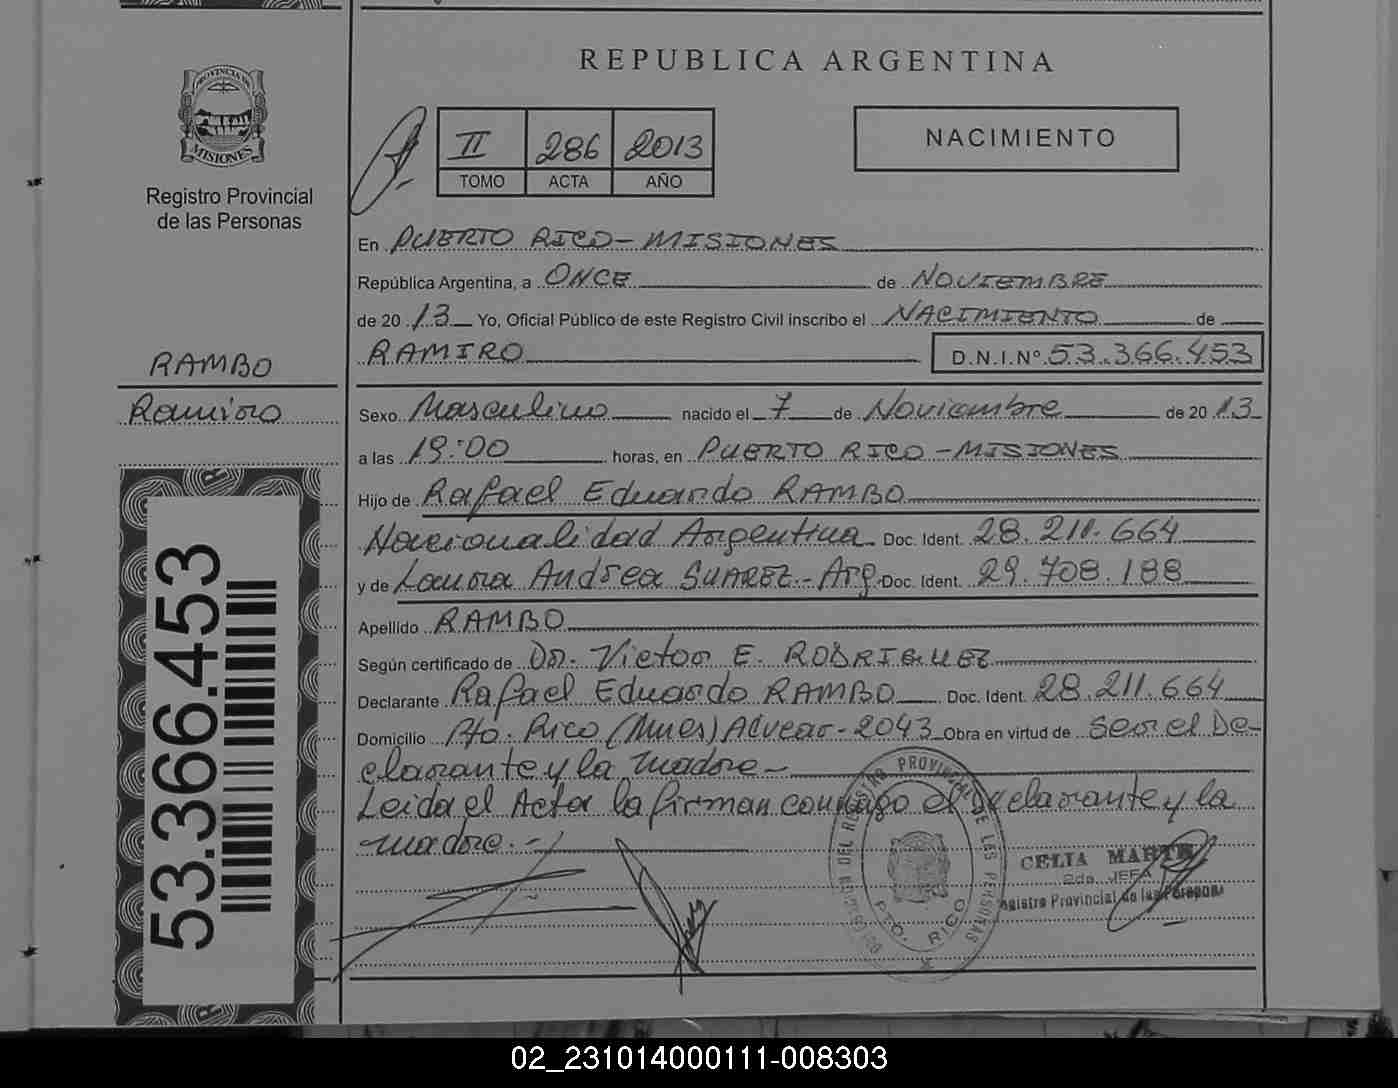 REPUBLICA ARGENTINA
PROVINCIA DE
MISIONES
Registro Provincial
de las Personas
II 286 2013
TOMO ACTA AÑO
NACIMIENTO
En PUERTO RICO - MISIONES
República Argentina, a ONCE de NOVIEMBRE
de 20 13 Yo, Oficial Público de este Registro Civil inscribo el NACIMIENTO de
RAMIRO D.N.I.Nº 53.366.453
RAMBO
Ramiro
Sexo Masculino nacido el 7 de Noviembre de 20 13
a las 19:00 horas, en PUERTO RICO - MISIONES
Hijo de Rafael Eduardo RAMBO
Nacionalidad Argentina Doc. Ident. 28.211.664
y de Laura Andrea SUAREZ.- Arg. Doc. Ident. 29.708.188
Apellido RAMBO
Según certificado de Dr. Victor E. RODRIGUEZ
Declarante Rafael Eduardo RAMBO Doc. Ident. 28.211.664
Domicilio Pto. Rico (Mnes) Alvear - 2043 Obra en virtud de ser el De-
clarante y la madre -
Leida el Acta la firman conmigo el Declarante y la
madre. -
53.366.453
DEL REGISTRO PROVINCIAL DE LAS PERSONAS
PTO. RICO
CELIA
2da. JEFA
Registro Provincial de las Personas
02_231014000111-008303